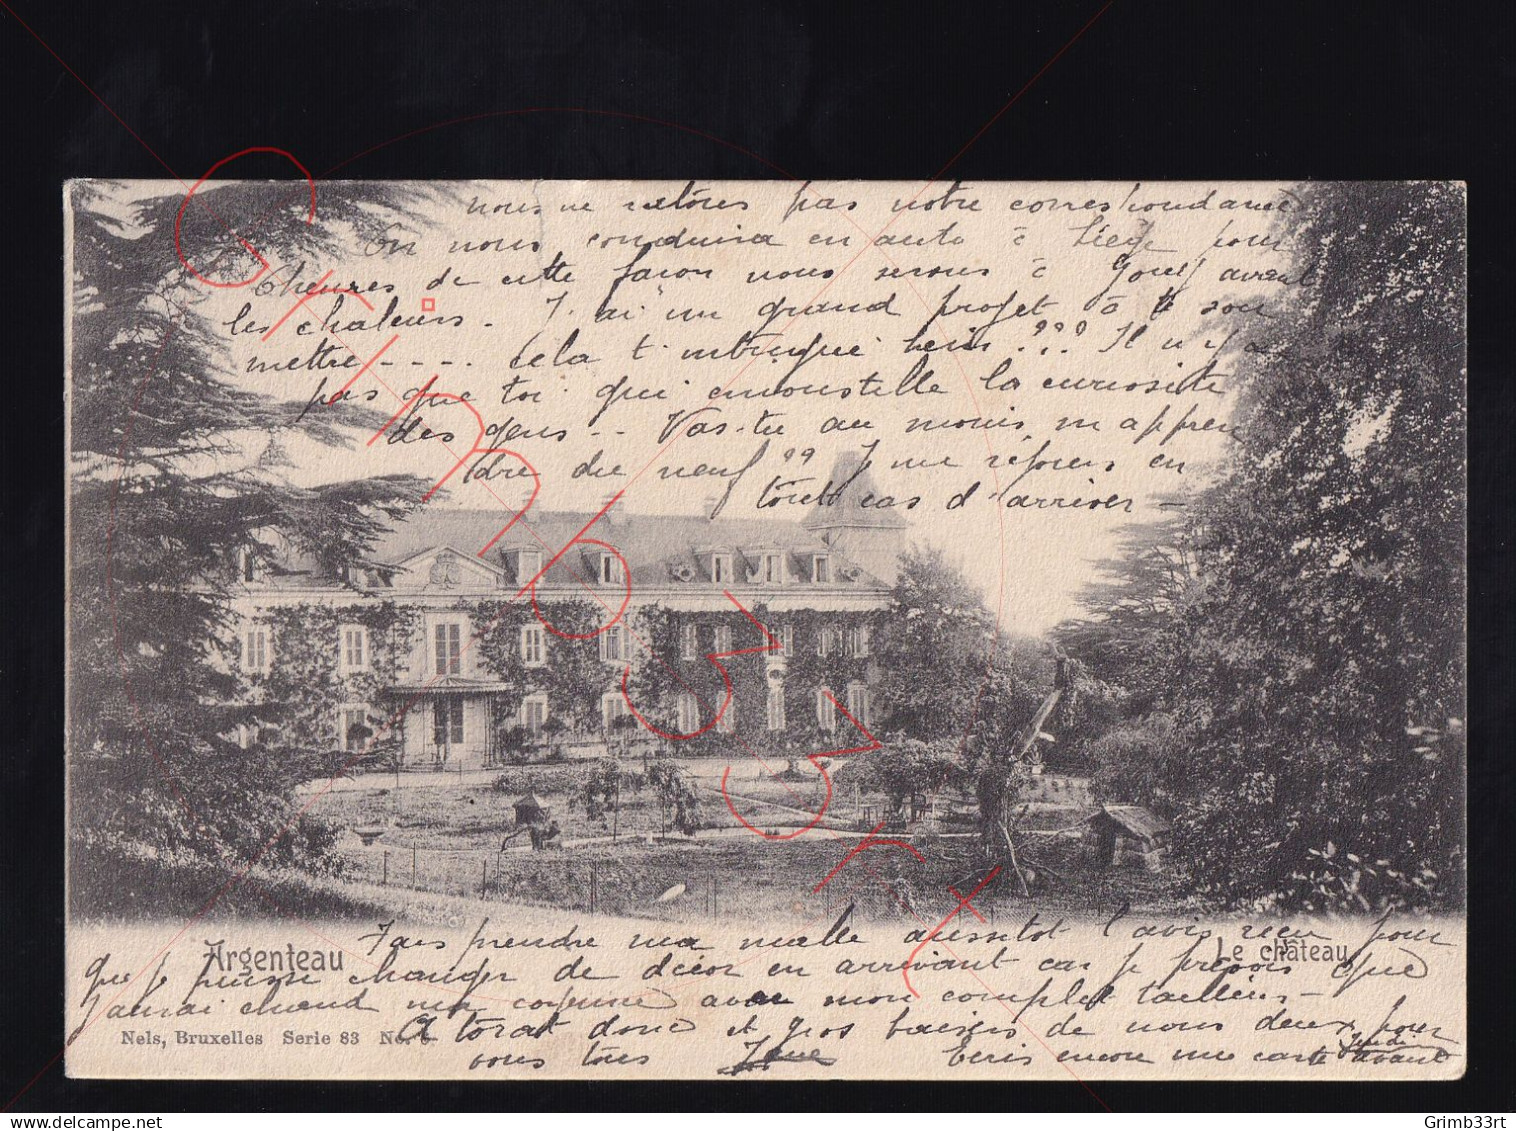 nous ne ratons pas notre correspondance
On nous conduira en auto à Liège pour
heures de cette façon nous serons à avant
les chaleurs. J'ai un grand projet à te sou
mettre - - - - cela t'intrigue hein ??? Il n'y a
pas que toi qui émoustille la curiosité
des gens - - Vas-tu au moins m'appren
dre du neuf ?? Je me réjouis en
tout cas d'arriver -
Fais prendre ma malle aussitôt l'avis reçu pour
que je puisse changer de décor en arrivant car je prévois que
j'aurai chaud avec mon complet tailleur -
A torat donc et gros baisers de nous deux pour
vous tous Jane Ecris encore une carte avant
jeudi
Argenteau
Le château
Nels, Bruxelles Serie 83 No.
Grimb33rt
© Grimb33rt